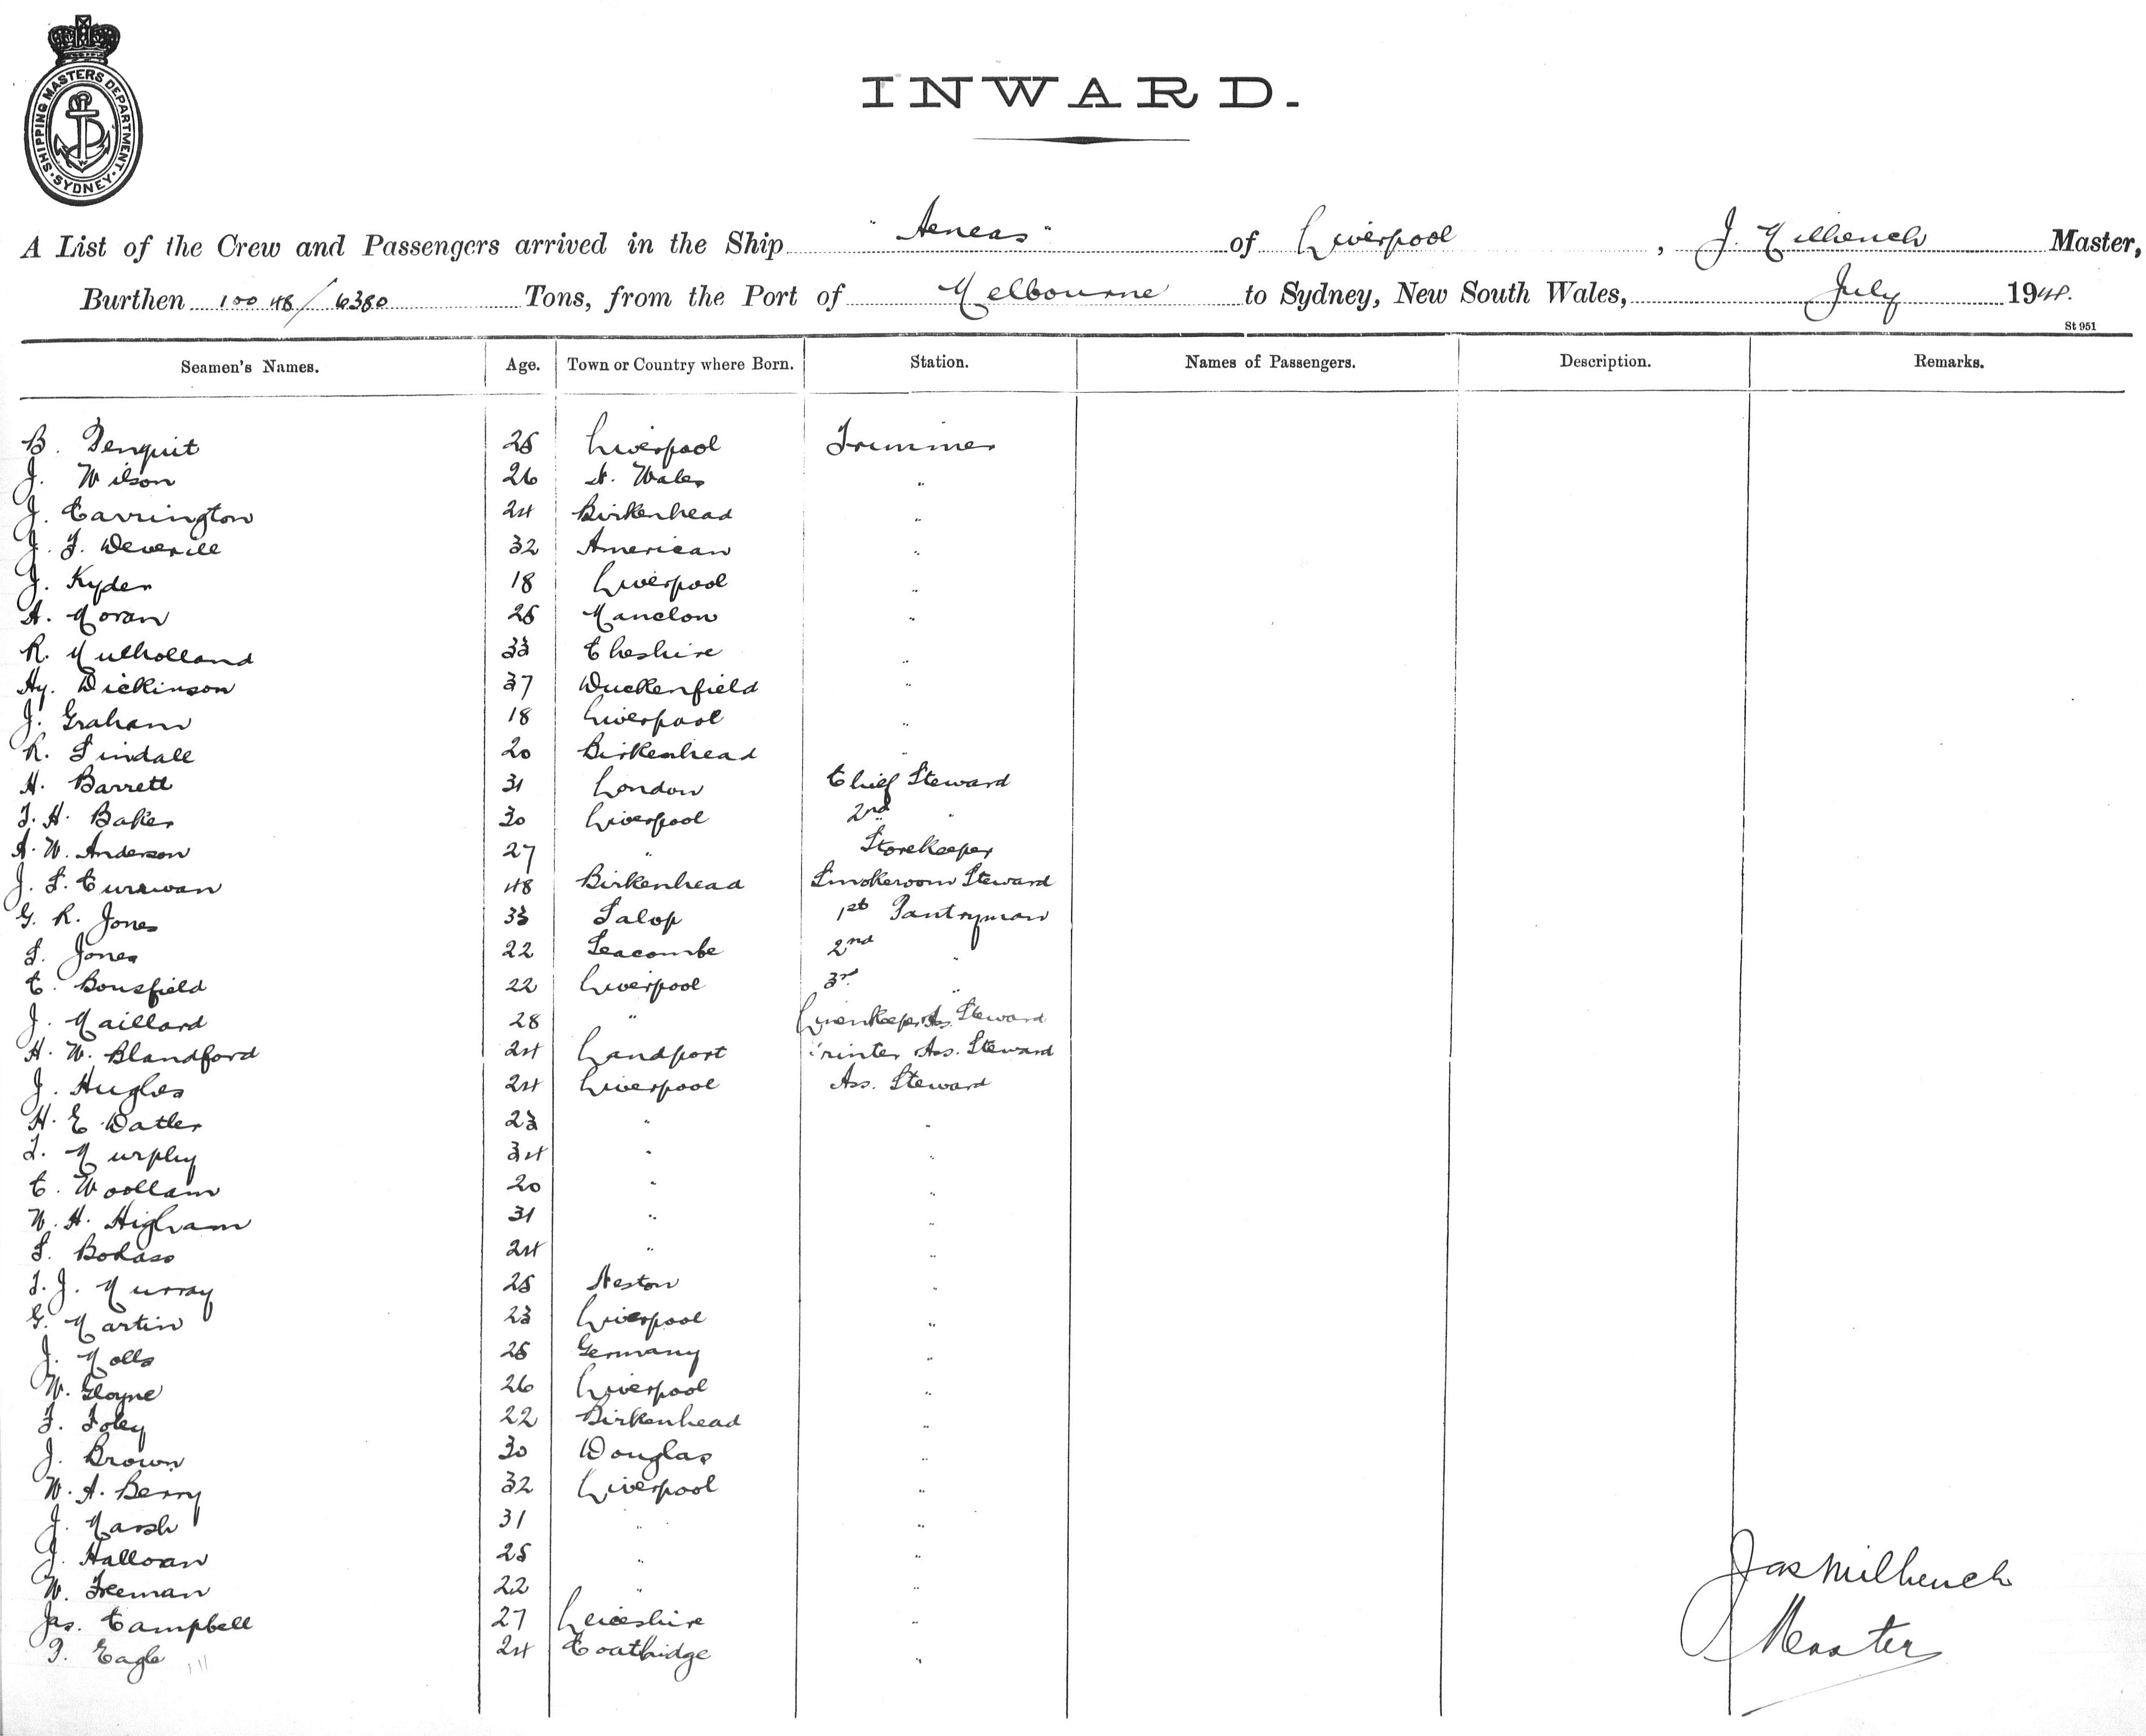 SHIPPING MASTERS DEPARTMENT · SYDNEY ·
INWARD.
A List of the Crew and Passengers arrived in the Ship "Aeneas" of Liverpool, J. Milhench Master,
Burthen 10048/6380 Tons, from the Port of Melbourne to Sydney, New South Wales, July 1914.
St 951
Seamen's Names. Age. Town or Country where Born. Station. Names of Passengers. Description. Remarks.
B. Penquit 25 Liverpool Trimmer
J. Wilson 26 N. Wales "
J. Carrington 24 Birkenhead "
J. F. Deverill 32 American "
J. Kyder 18 Liverpool "
A. Moran 25 "
R. Mulholland 33 Cheshire "
Hy. Dickinson 37 Duckenfield "
J. Graham 18 Liverpool "
R. Tindall 20 Birkenhead "
H. Barrett 31 London Chief Steward
T. H. Baker 30 Liverpool 2nd "
A. W. Anderson 27 " Storekeeper
J. S. Curwan 48 Birkenhead Smokeroom Steward
G. R. Jones 33 Salop 1st Pantryman
S. Jones 22 Seacombe 2nd "
C. Bousfield 22 Liverpool 3rd "
J. Maillard 28 " Linenkeeper As. Steward
H. W. Blandford 24 Landport Printer Ass. Steward
J. Hughes 24 Liverpool Ass. Steward
H. E. Datler 23 " "
T. Murphy 34 " "
C. Woollam 20 " "
W. H. Higham 31 " "
S. Bodass 24 " "
T. J. Murray 25 Neston "
G. Martin 23 Liverpool "
J. Molls 25 Germany "
W. Gloyne 26 Liverpool "
F. Foley 22 Birkenhead "
J. Brown 30 Douglas "
W. A. Berry 32 Liverpool "
J. Marsh 31 " "
J. Halloran 25 " "
W. Freeman 22 " "
Jas. Campbell 27 "
P. Eagle 24 Coatbridge "
Jas Milhench
Master